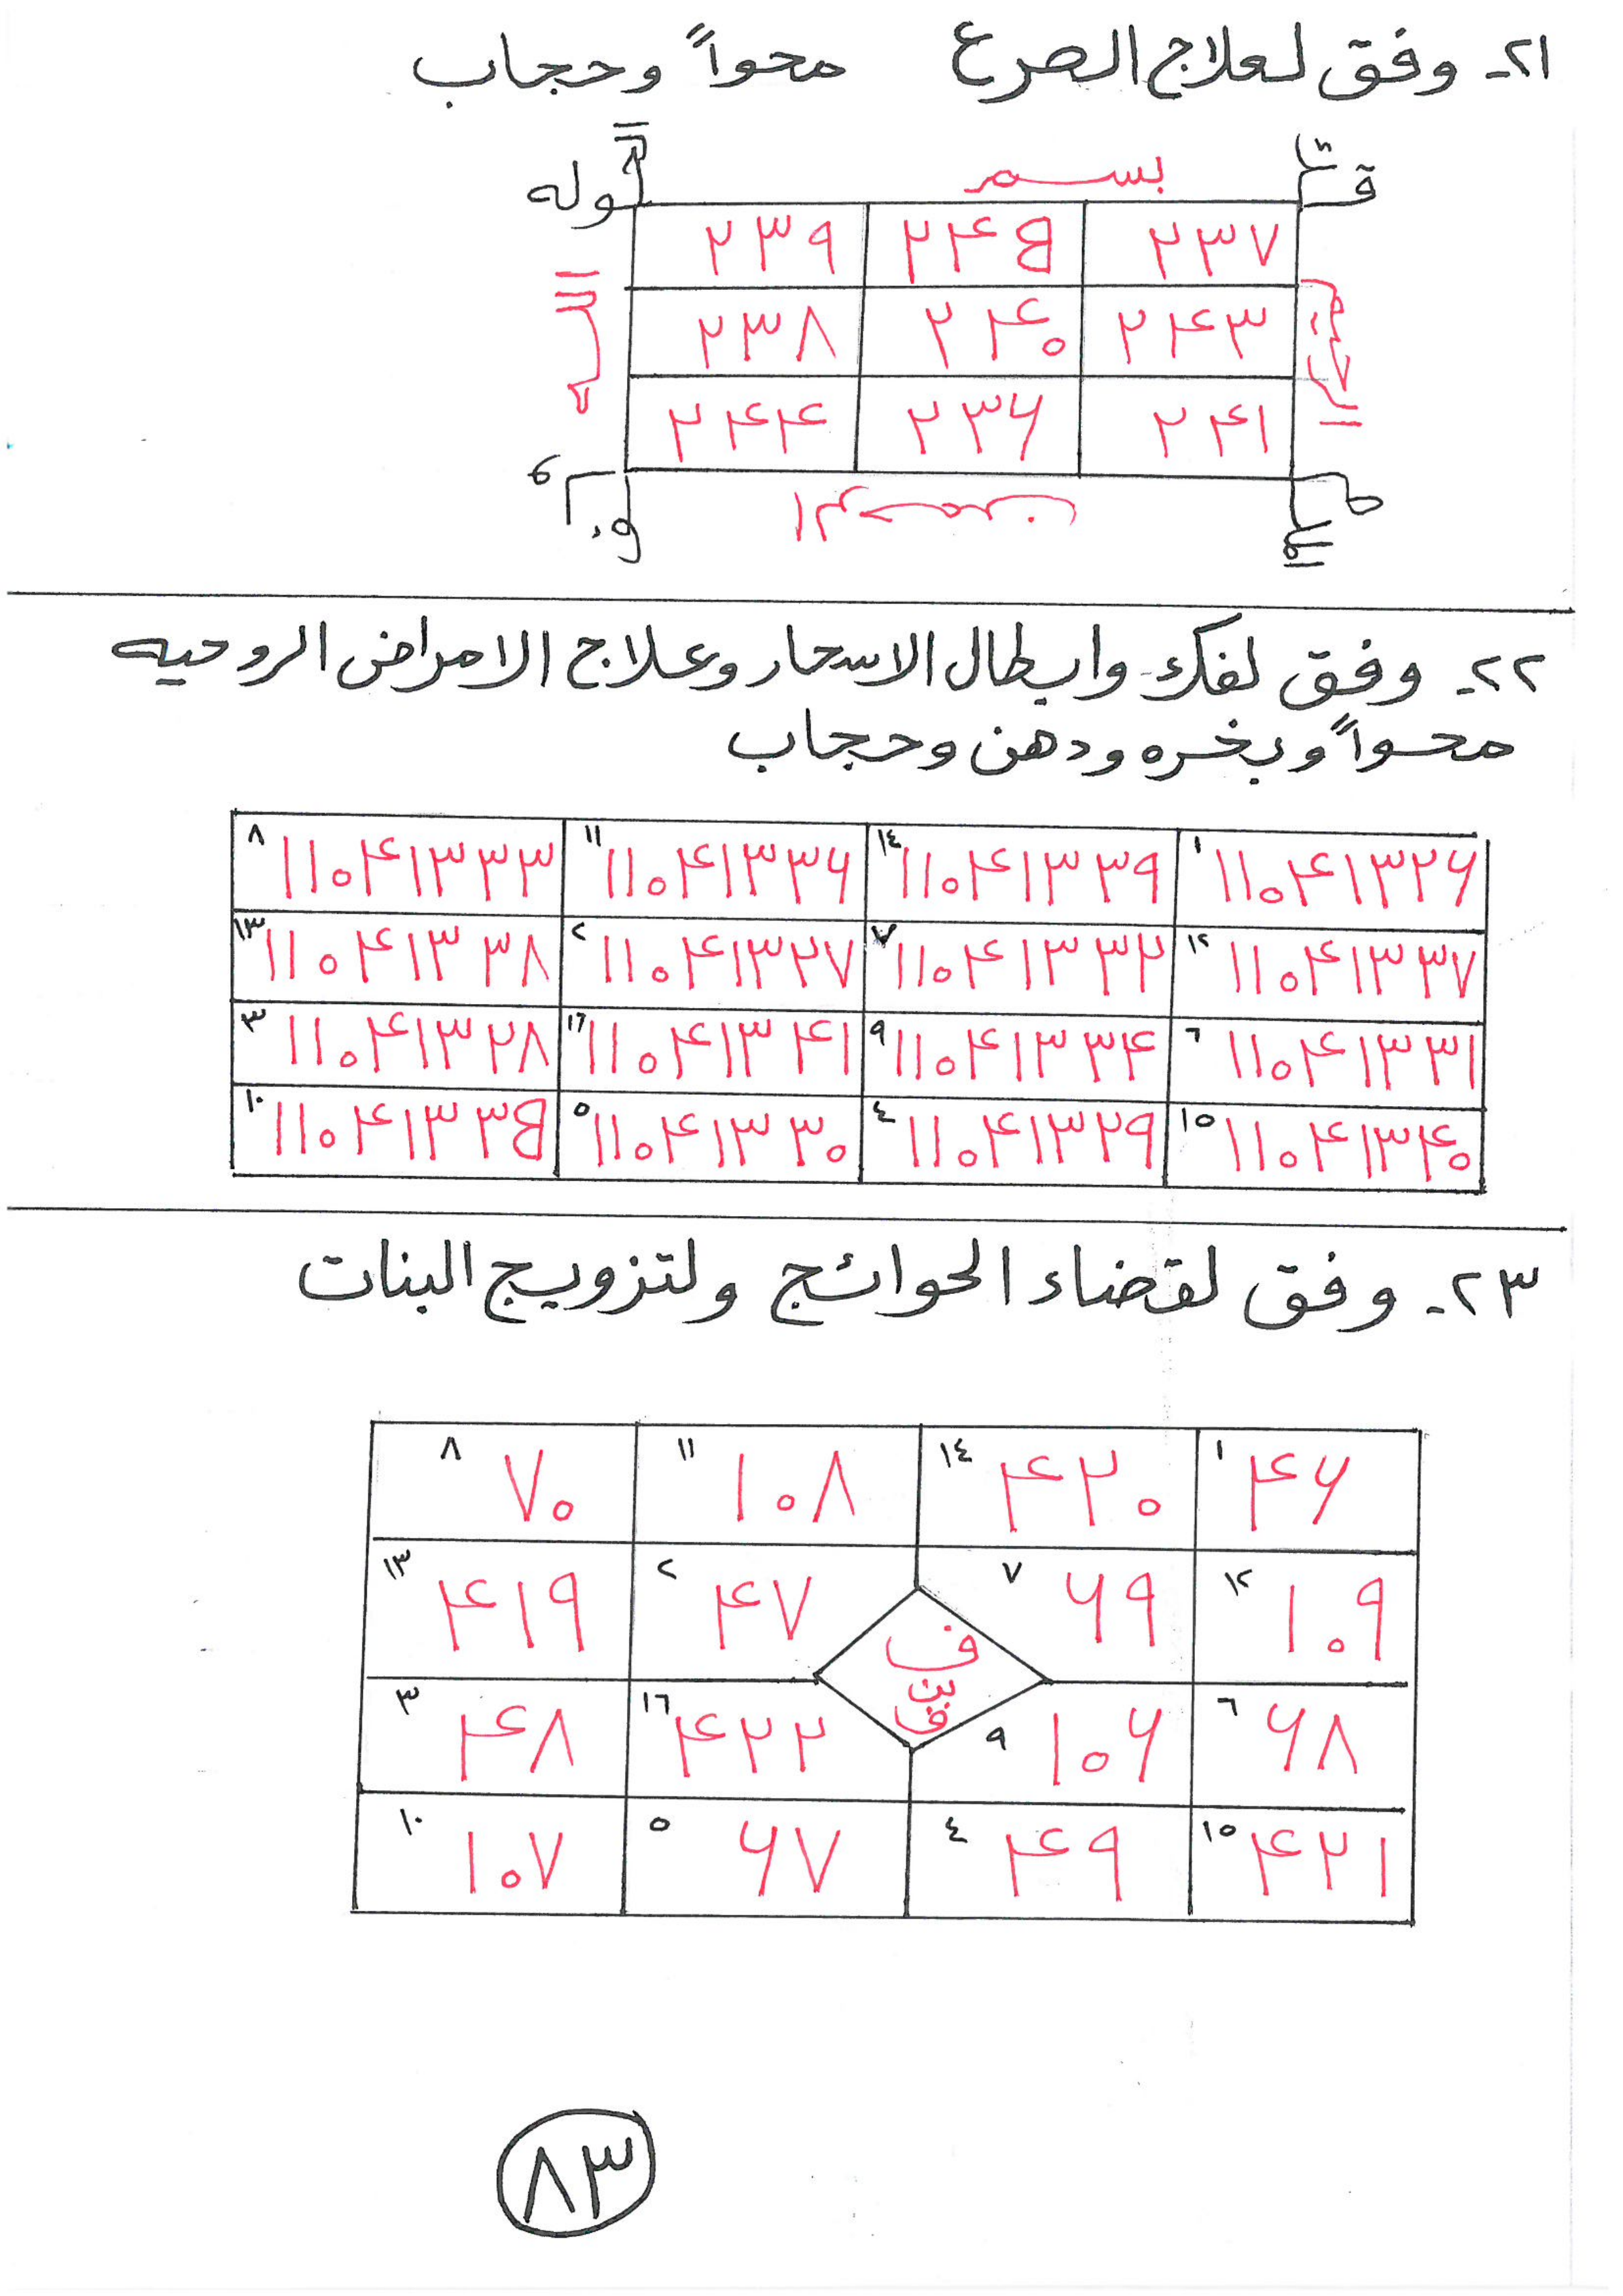 ٢١- وفق لعلاج الصرع محواً وحجاب
بسم
قو له
٢٣٩ ٢٤B ٢٣٧
٢٣٨ ٢٤٠ ٢٤٣
٢٤٤ ٢٣٦ ٢٤١
الله
الرحيم
الرحمن
٢٢- وفق لفك وابطال الاسحار وعلاج الامراض الروحيه
محواً وبخره ودهن وحجاب
٨ ١١٠٤١٣٣٣ ١١ ١١٠٤١٣٣٦ ١٤ ١١٠٤١٣٣٩ ١ ١١٠٤١٣٢٦
١٣ ١١٠٤١٣٣٨ ٢ ١١٠٤١٣٢٧ ٧ ١١٠٤١٣٣٢ ١٢ ١١٠٤١٣٣٧
٣ ١١٠٤١٣٢٨ ١٦ ١١٠٤١٣٤١ ٩ ١١٠٤١٣٣٤ ٦ ١١٠٤١٣٣١
١٠ ١١٠٤١٣٣B ٥ ١١٠٤١٣٣٠ ٤ ١١٠٤١٣٢٩ ١٥ ١١٠٤١٣٤٠
٢٣- وفق لقضاء الحوائج ولتزويج البنات
٨ ٧٠ ١١ ١٠٨ ١٤ ٤٢٠ ١ ٤٦
١٣ ٤١٩ ٢ ٤٧ ٧ ٦٩ ١٢ ١٠٩
ف
بن
ف
٣ ٤٨ ١٦ ٤٢٢ ٩ ١٠٦ ٦ ٦٨
١٠ ١٠٧ ٥ ٦٧ ٤ ٤٩ ١٥ ٤٢١
٨٣